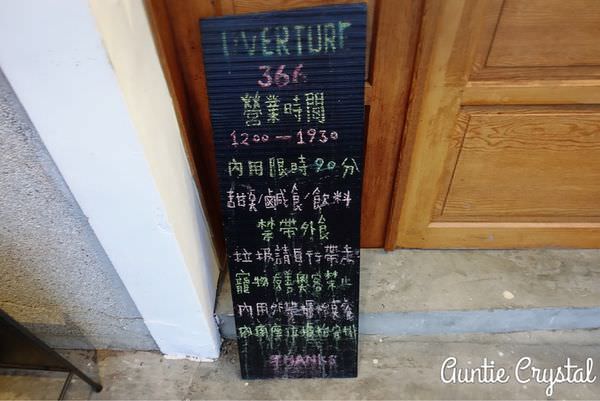 OVERTURE
366
營業時間
1200-1930
內用限時90分
甜點/鹹食/飲料
禁帶外食
垃圾請自行帶走
寵物
禁止
內用外帶櫃檯點餐
內用座位
THANKS
Auntie Crystal